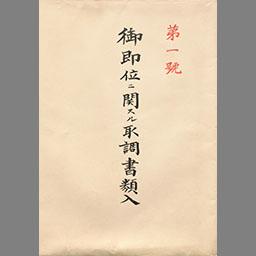 第一號
御即位ニ関スル取調書類入